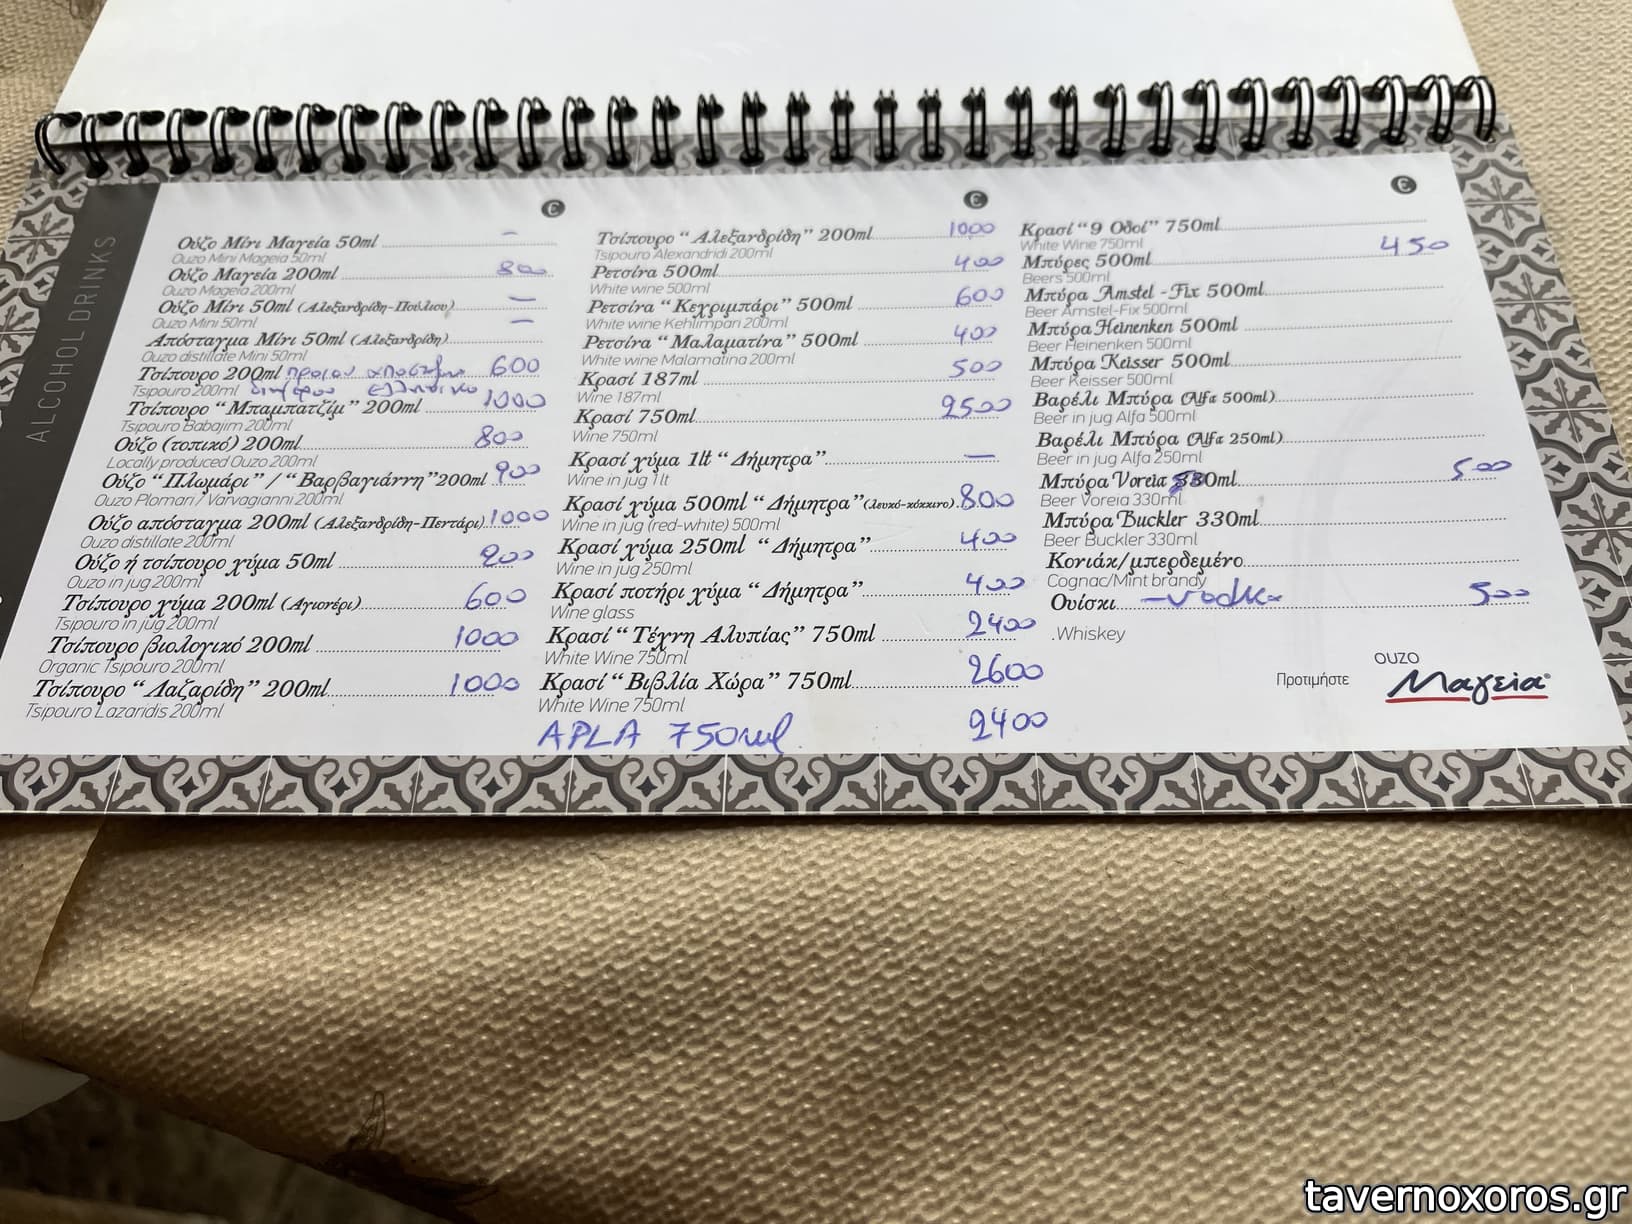 ALCOHOL DRINKS
€
Ούζο Μίνι Μαγεία 50ml –
Ouzo Mini Mageia 50ml
Ούζο Μαγεία 200ml 800
Ouzo Mageia 200ml
Ούζο Μίνι 50ml (Αλεξανδρίδη-Πούλιου) –
Ouzo Mini 50ml
Απόσταγμα Μίνι 50ml (Αλεξανδρίδη) –
Ouzo distillate Mini 50ml
Τσίπουρο 200ml 600
Tsipouro 200ml
Τσίπουρο “Μπαμπατζίμ” 200ml 1000
Tsipouro Babajim 200ml
Ούζο (τοπικό) 200ml 800
Locally produced Ouzo 200ml
Ούζο “Πλωμάρι” / “Βαρβαγιάννη” 200ml 900
Ouzo Plomari / Varvagianni 200ml
Ούζο απόσταγμα 200ml (Αλεξανδρίδη-Πεντάρι) 1000
Ouzo distillate 200ml
Ούζο ή τσίπουρο χύμα 50ml 200
Ouzo in jug 200ml
Τσίπουρο χύμα 200ml (Αγιονέρι) 600
Tsipouro in jug 200ml
Τσίπουρο βιολογικό 200ml 1000
Organic Tsipouro 200ml
Τσίπουρο “Λαζαρίδη” 200ml 1000
Tsipouro Lazaridis 200ml
€
Τσίπουρο “Αλεξανδρίδη” 200ml 1000
Tsipouro Alexandridi 200ml
Ρετσίνα 500ml 400
White wine 500ml
Ρετσίνα “Κεχριμπάρι” 500ml 600
White wine Kehlimpari 200ml
Ρετσίνα “Μαλαματίνα” 500ml 400
White wine Malamatina 200ml
Κρασί 187ml 500
Wine 187ml
Κρασί 750ml 2500
Wine 750ml
Κρασί χύμα 1lt “Δήμητρα” –
Wine in jug 1lt
Κρασί χύμα 500ml “Δήμητρα” (λευκό-κόκκινο) 800
Wine in jug (red-white) 500ml
Κρασί χύμα 250ml “Δήμητρα” 400
Wine in jug 250ml
Κρασί ποτήρι χύμα “Δήμητρα” 400
Wine glass
Κρασί “Τέχνη Αλυπίας” 750ml 2400
White Wine 750ml
Κρασί “Βιβλία Χώρα” 750ml 2600
White Wine 750ml
APLA 750ml 2400
€
Κρασί “9 Οδοί” 750ml
White Wine 750ml 450
Μπύρες 500ml
Beers 500ml
Μπύρα Amstel -Fix 500ml
Beer Amstel-Fix 500ml
Μπύρα Heinenken 500ml
Beer Heinenken 500ml
Μπύρα Keisser 500ml
Beer Keisser 500ml
Βαρέλι Μπύρα (Alfa 500ml)
Beer in jug Alfa 500ml
Βαρέλι Μπύρα (Alfa 250ml)
Beer in jug Alfa 250ml
Μπύρα Voreia 330ml 500
Beer Voreia 330ml
Μπύρα Buckler 330ml
Beer Buckler 330ml
Κονιάκ/μπερδεμένο
Cognac/Mint brandy
Ουίσκι –vodka 500
.Whiskey
Προτιμήστε
ΟΥΖΟ
Μαγεία
tavernoxoros.gr